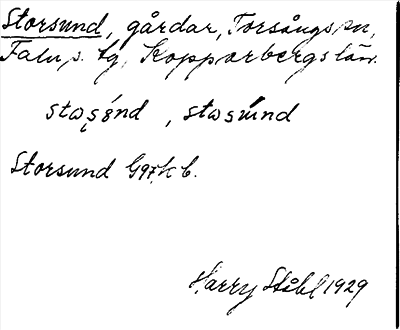 Storsund, gårdar, Torsångs sn,
Falu s. tg, Kopparbergs län.
stωʂ́ənd , stωsúnd
Storsund G97 k b.
Harry Ståhl 1929